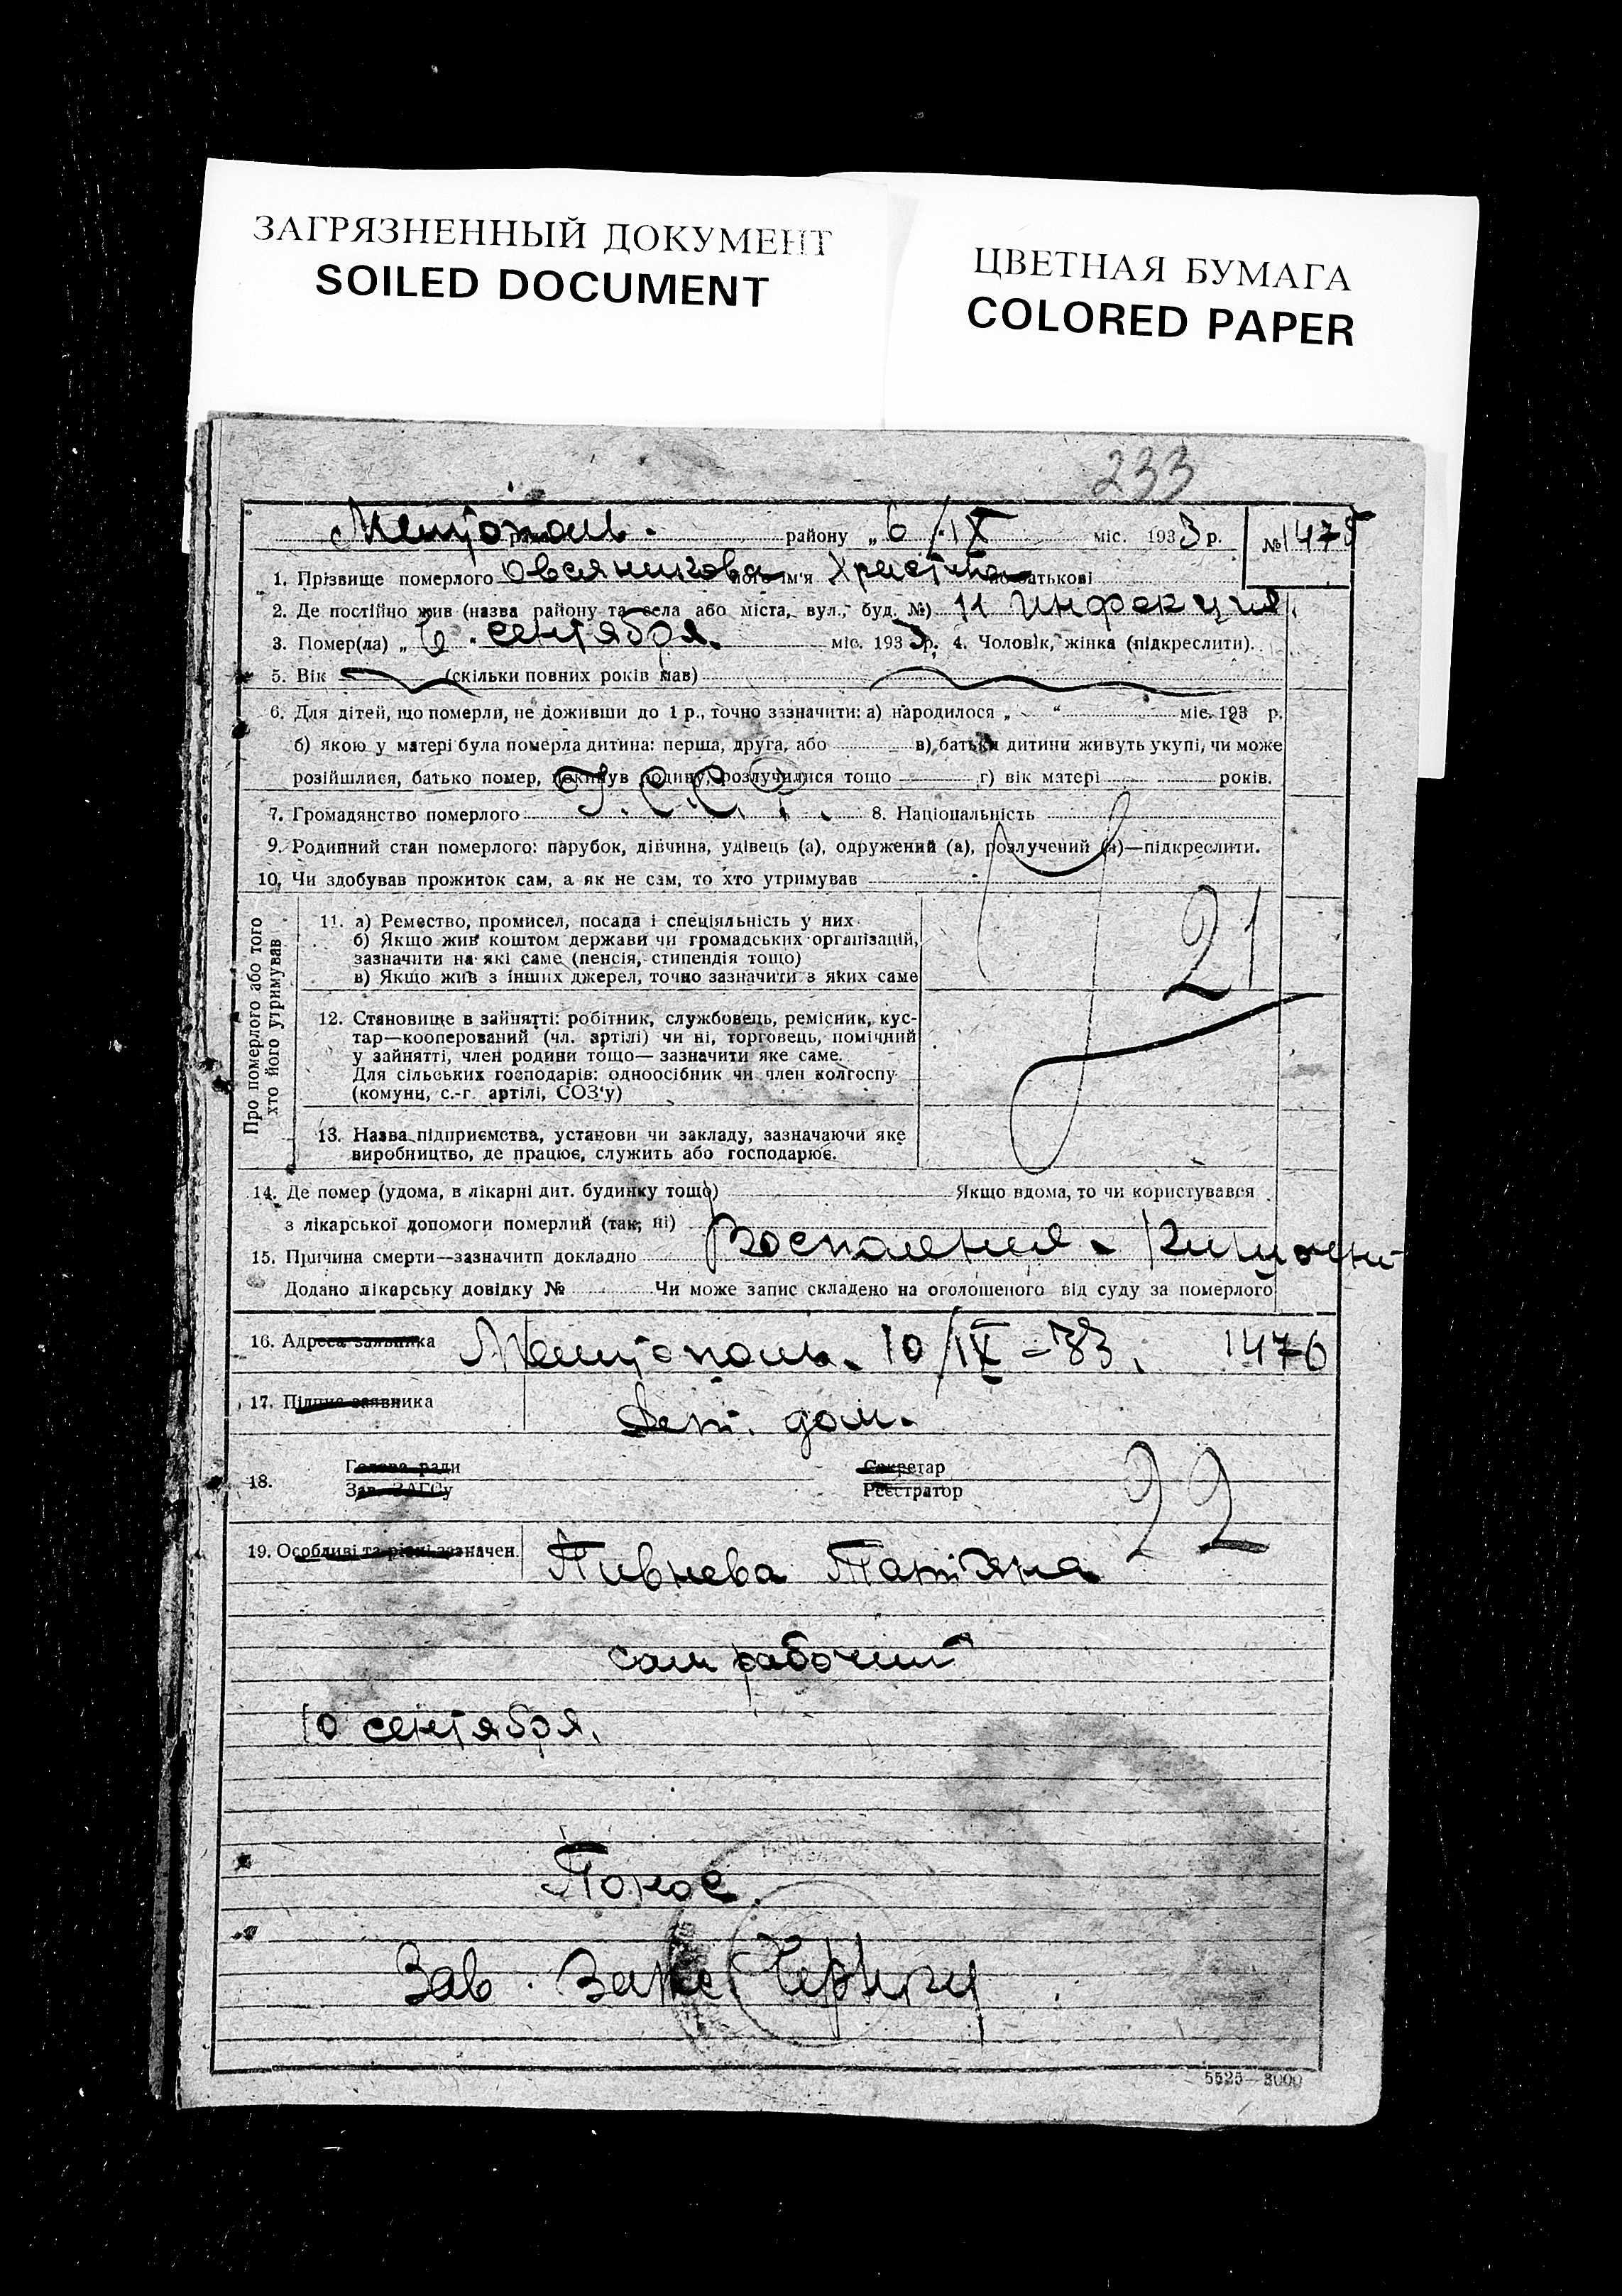 ЗАГРЯЗНЕННЫЙ ДОКУМЕНТ
SOILED DOCUMENT
ЦВЕТНАЯ БУМАГА
COLORED PAPER
233
району „ 6/IX міс. 1933 р. № 1475
1. Прізвище померлого Овсяникова ім'я по батькові
2. Де постійно жив (назва району та села або міста, вул., буд. №) 11 инфекция
3. Помер(ла) „ 6 " сентября міс. 1933 р. 4. Чоловік, жінка (підкреслити).
5. Вік (скільки повних років мав)
6. Для дітей, що померли, не доживши до 1 р., точно зазначити: а) народилося „ “ міс. 193 р.
б) якою у матері була померла дитина: перша, друга, або в) батьки дитини живуть укупі, чи може
розійшлися, батько помер, покинув родину, розлучилися тощо г) вік матері років.
7. Громадянство померлого 8. Національність
9. Родинний стан померлого: парубок, дівчина, удівець (а), одружений (а), розлучений (а)—підкреслити.
10. Чи здобував прожиток сам, а як не сам, то хто утримував
Про померлого або того
хто його утримував
11. а) Ремество, промисел, посада і спеціяльність у них
б) Якщо жив коштом держави чи громадських організацій,
зазначити на які саме (пенсія, стипендія тощо)
в) Якщо жив з інших джерел, точно зазначити з яких саме
21
12. Становище в зайнятті: робітник, службовець, ремісник, кус-
тар—кооперований (чл. артілі) чи ні, торговець, помічний
у зайнятті, член родини тощо— зазначити яке саме.
Для сільських господарів: одноосібник чи член колгоспу
(комуни, с.-г. артілі, СОЗ'у)
13. Назва підприємства, установи чи закладу, зазначаючи яке
виробництво, де працює, служить або господарює.
14. Де помер (удома, в лікарні дит. будинку тощо) Якщо вдома, то чи користувався
з лікарської допомоги померлий (так, ні)
15. Причина смерти—зазначити докладно Воспаления
Додано лікарську довідку № Чи може запис складено на оголошеного від суду за померлого
16. Адреса заявника 10/IX – 33. 1476
17. Підпис заявника Дет. дом.
18. Голова ради Секретар
Зав. ЗАГСу Реєстратор
22
19. Особливі та різні зазначен. Пивнева Татіяна
сам рабочий
10 сентября.
Понос
Зав.
5525—3000